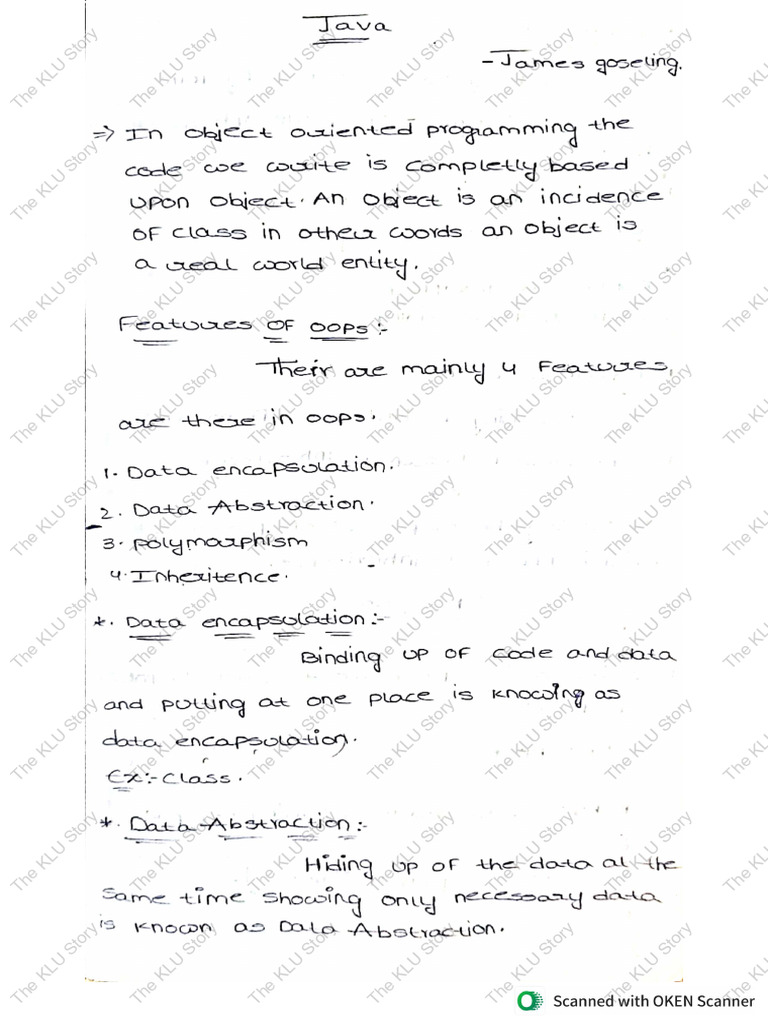 Java
- James goseling.
=> In object oriented programming the
code we write is completly based
upon object. An object is an incidence
of class in other words an object is
a real world entity.
Features of oops :-
Their are mainly 4 features,
are there in oops.
1. Data encapsulation.
2. Data Abstraction.
3. polymorphism
4. Inheritence.
*. Data encapsulation :-
Binding up of code and data
and putting at one place is knowing as
data encapsulation.
Ex :- class.
*. Data Abstraction :-
Hiding up of the data at the
same time showing only necessary data
is known as Data Abstraction.
The KLU Story
Scanned with OKEN Scanner